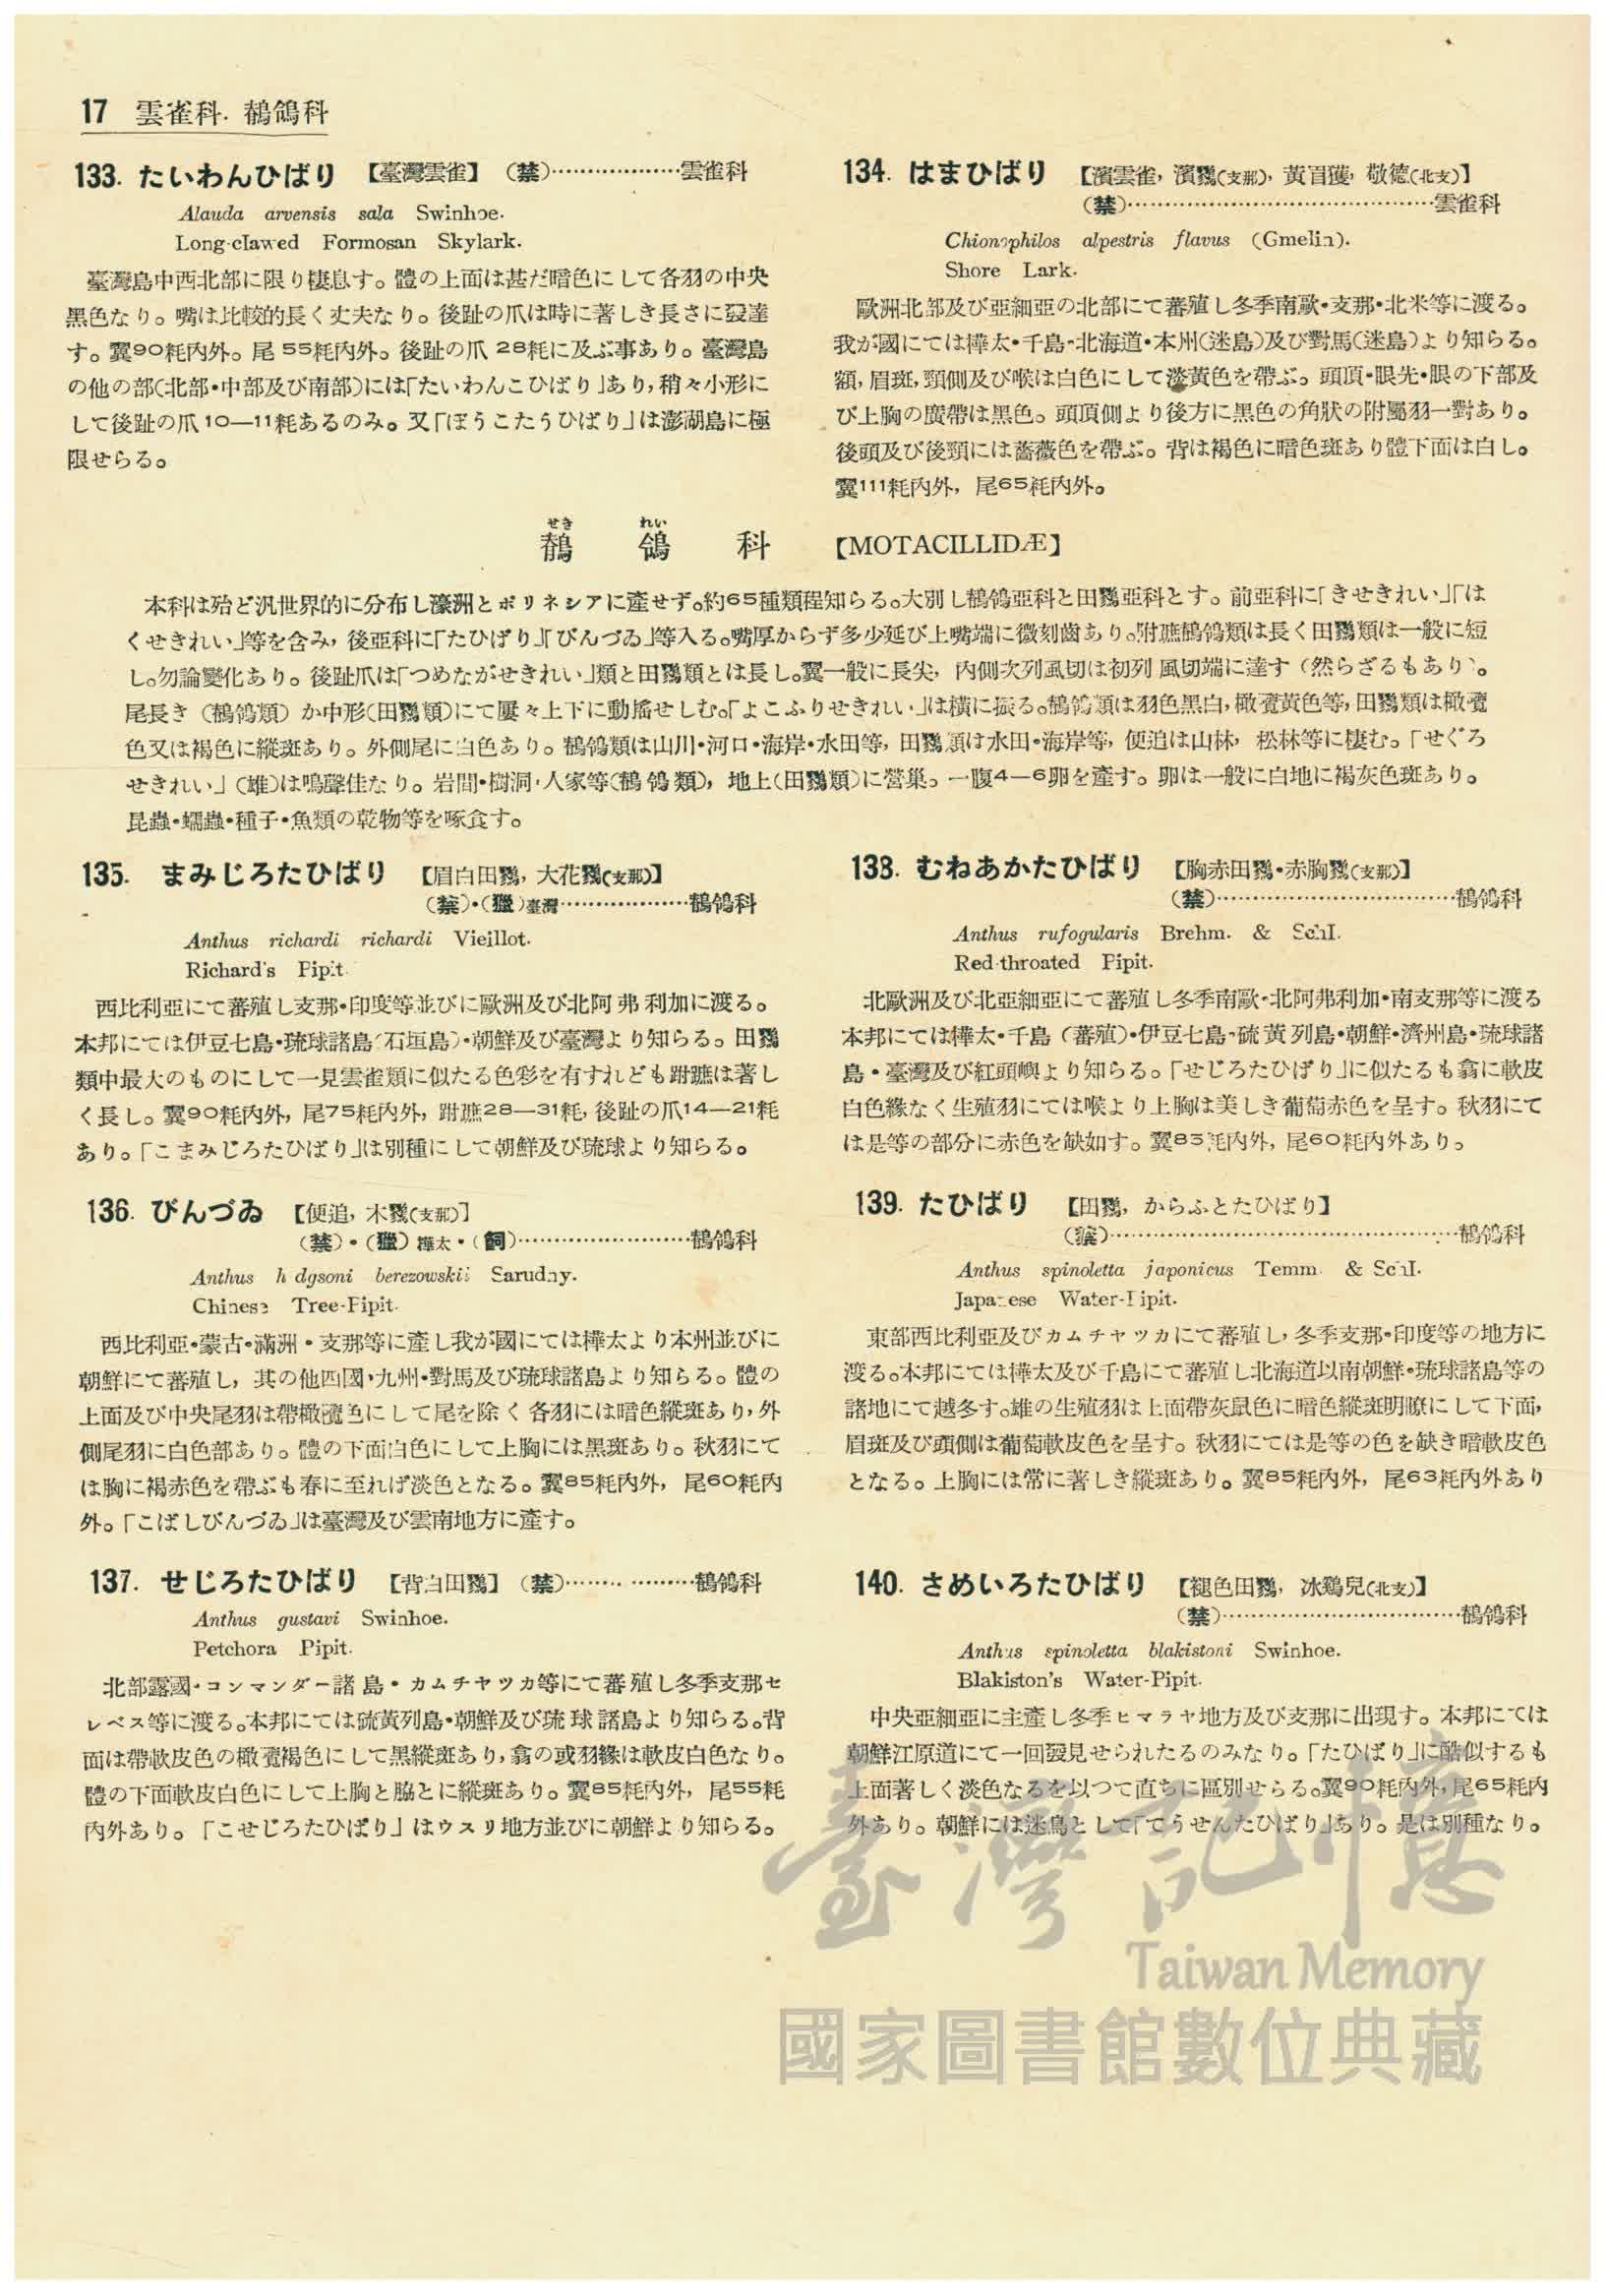 17 雲雀科. 鶺鴒科
133. たいわんひばり 【臺灣雲雀】 (禁)………………雲雀科
Alauda arvensis sala Swinhoe.
Long-clawed Formosan Skylark.
臺灣島中西北部に限り棲息す。體の上面は甚だ暗色にして各羽の中央
黑色なり。嘴は比較的長く丈夫なり。後趾の爪は時に著しき長さに發達
す。翼90粍内外。尾55粍内外。後趾の爪28粍に及ぶ事あり。臺灣島
の他の部(北部・中部及び南部)には「たいわんこひばり」あり,稍々小形に
して後趾の爪10—11粍あるのみ。又「ぼうこたうひばり」は澎湖島に極
限せらる。
134. はまひばり 【濱雲雀, 濱鷚(支那), 黃眉獲, 敬德(北支)】
(禁)……………………………………雲雀科
Chionophilos alpestris flavus (Gmelin).
Shore Lark.
歐洲北部及び亞細亞の北部にて蕃殖し冬季南歐・支那・北米等に渡る。
我が國にては樺太・千島・北海道・本州(迷島)及び對馬(迷島)より知らる。
額,眉斑,頸側及び喉は白色にして淡黃色を帶ぶ。頭頂・眼先・眼の下部及
び上胸の廣帶は黑色。頭頂側より後方に黑色の角狀の附屬羽一對あり。
後頭及び後頸には薔薇色を帶ぶ。背は褐色に暗色斑あり體下面は白し。
翼111粍内外, 尾65粍内外。
せき れい
鶺 鴒 科 【MOTACILLIDÆ】
本科は殆ど汎世界的に分布し濠洲とポリネシアに產せず。約65種類程知らる。大別し鶺鴒亞科と田鷚亞科とす。前亞科に「きせきれい」「は
くせきれい」等を含み, 後亞科に「たひばり」「びんづゐ」等入る。嘴厚からず多少延び上嘴端に微刻齒あり。跗蹠鶺鴒類は長く田鷚類は一般に短
し。勿論變化あり。後趾爪は「つめながせきれい」類と田鷚類とは長し。翼一般に長尖, 内側次列風切は初列風切端に達す(然らざるもあり)。
尾長き(鶺鴒類)か中形(田鷚類)にて屢々上下に動搖せしむ。「よこふりせきれい」は橫に振る。鶺鴒類は羽色黑白,橄欖黃色等,田鷚類は橄欖
色又は褐色に縱斑あり。外側尾に白色あり。鶺鴒類は山川・河口・海岸・水田等, 田鷚類は水田・海岸等, 便追は山林, 松林等に棲む。「せぐろ
せきれい」(雄)は鳴聲佳なり。岩間・樹洞・人家等(鶺鴒類), 地上(田鷚類)に營巢。一腹4—6卵を產す。卵は一般に白地に褐灰色斑あり。
昆蟲・蠕蟲・種子・魚類の乾物等を啄食す。
135. まみじろたひばり 【眉白田鷚, 大花鷚(支那)】
(禁)・(獵)臺灣………………鶺鴒科
Anthus richardi richardi Vieillot.
Richard's Pipit.
西比利亞にて蕃殖し支那・印度等並びに歐洲及び北阿弗利加に渡る。
本邦にては伊豆七島・琉球諸島(石垣島)・朝鮮及び臺灣より知らる。田鷚
類中最大のものにして一見雲雀類に似たる色彩を有すれども跗蹠は著し
く長し。翼90粍内外, 尾75粍内外, 跗蹠28—31粍, 後趾の爪14—21粍
あり。「こまみじろたひばり」は別種にして朝鮮及び琉球より知らる。
136. びんづゐ 【便追, 木鷚(支那)】
(禁)・(獵)樺太・(飼)……………………鶺鴒科
Anthus hodgsoni berezowskii Sarudny.
Chinese Tree-Pipit.
西比利亞・蒙古・滿洲・支那等に產し我が國にては樺太より本州並びに
朝鮮にて蕃殖し, 其の他四國・九州・對馬及び琉球諸島より知らる。體の
上面及び中央尾羽は帶橄欖色にして尾を除く各羽には暗色縱斑あり,外
側尾羽に白色部あり。體の下面白色にして上胸には黑斑あり。秋羽にて
は胸に褐赤色を帶ぶも春に至れば淡色となる。翼85粍内外, 尾60粍内
外。「こばしびんづゐ」は臺灣及び雲南地方に產す。
137. せじろたひばり 【背白田鷚】 (禁)………………鶺鴒科
Anthus gustavi Swinhoe.
Petchora Pipit.
北部露國・コンマンダー諸島・カムチヤツカ等にて蕃殖し冬季支那セ
レベス等に渡る。本邦にては硫黃列島・朝鮮及び琉球諸島より知らる。背
面は帶軟皮色の橄欖褐色にして黑縱斑あり,翕の或羽緣は軟皮白色なり。
體の下面軟皮白色にして上胸と脇とに縱斑あり。翼85粍内外, 尾55粍
内外あり。「こせじろたひばり」はウスリ地方並びに朝鮮より知らる。
138. むねあかたひばり 【胸赤田鷚・赤胸鷚(支那)】
(禁)……………………………鶺鴒科
Anthus rufogularis Brehm. & Schl.
Red-throated Pipit.
北歐洲及び北亞細亞にて蕃殖し冬季南歐・北阿弗利加・南支那等に渡る
本邦にては樺太・千島(蕃殖)・伊豆七島・硫黃列島・朝鮮・濟州島・琉球諸
島・臺灣及び紅頭嶼より知らる。「せじろたひばり」に似たるも翕に軟皮
白色緣なく生殖羽にては喉より上胸は美しき葡萄赤色を呈す。秋羽にて
は是等の部分に赤色を缺如す。翼85粍内外, 尾60粍内外あり。
139. たひばり 【田鷚, からふとたひばり】
(獵)…………………………………………鶺鴒科
Anthus spinoletta japonicus Temm. & Schl.
Japanese Water-Pipit.
東部西比利亞及びカムチヤツカにて蕃殖し,冬季支那・印度等の地方に
渡る。本邦にては樺太及び千島にて蕃殖し北海道以南朝鮮・琉球諸島等の
諸地にて越冬す。雄の生殖羽は上面帶灰鼠色に暗色縱斑明瞭にして下面,
眉斑及び頭側は葡萄軟皮色を呈す。秋羽にては是等の色を缺き暗軟皮色
となる。上胸には常に著しき縱斑あり。翼85粍内外, 尾63粍内外あり
140. さめいろたひばり 【褪色田鷚, 冰鷄兒(北支)】
(禁)……………………………鶺鴒科
Anthus spinoletta blakistoni Swinhoe.
Blakiston's Water-Pipit.
中央亞細亞に主產し冬季ヒマラヤ地方及び支那に出現す。本邦にては
朝鮮江原道にて一回發見せられたるのみなり。「たひばり」に酷似するも
上面著しく淡色なるを以つて直ちに區別せらる。翼90粍内外,尾65粍内
外あり。朝鮮には迷鳥として「てうせんたひばり」あり。是は別種なり。
臺灣記憶
Taiwan Memory
國家圖書館數位典藏